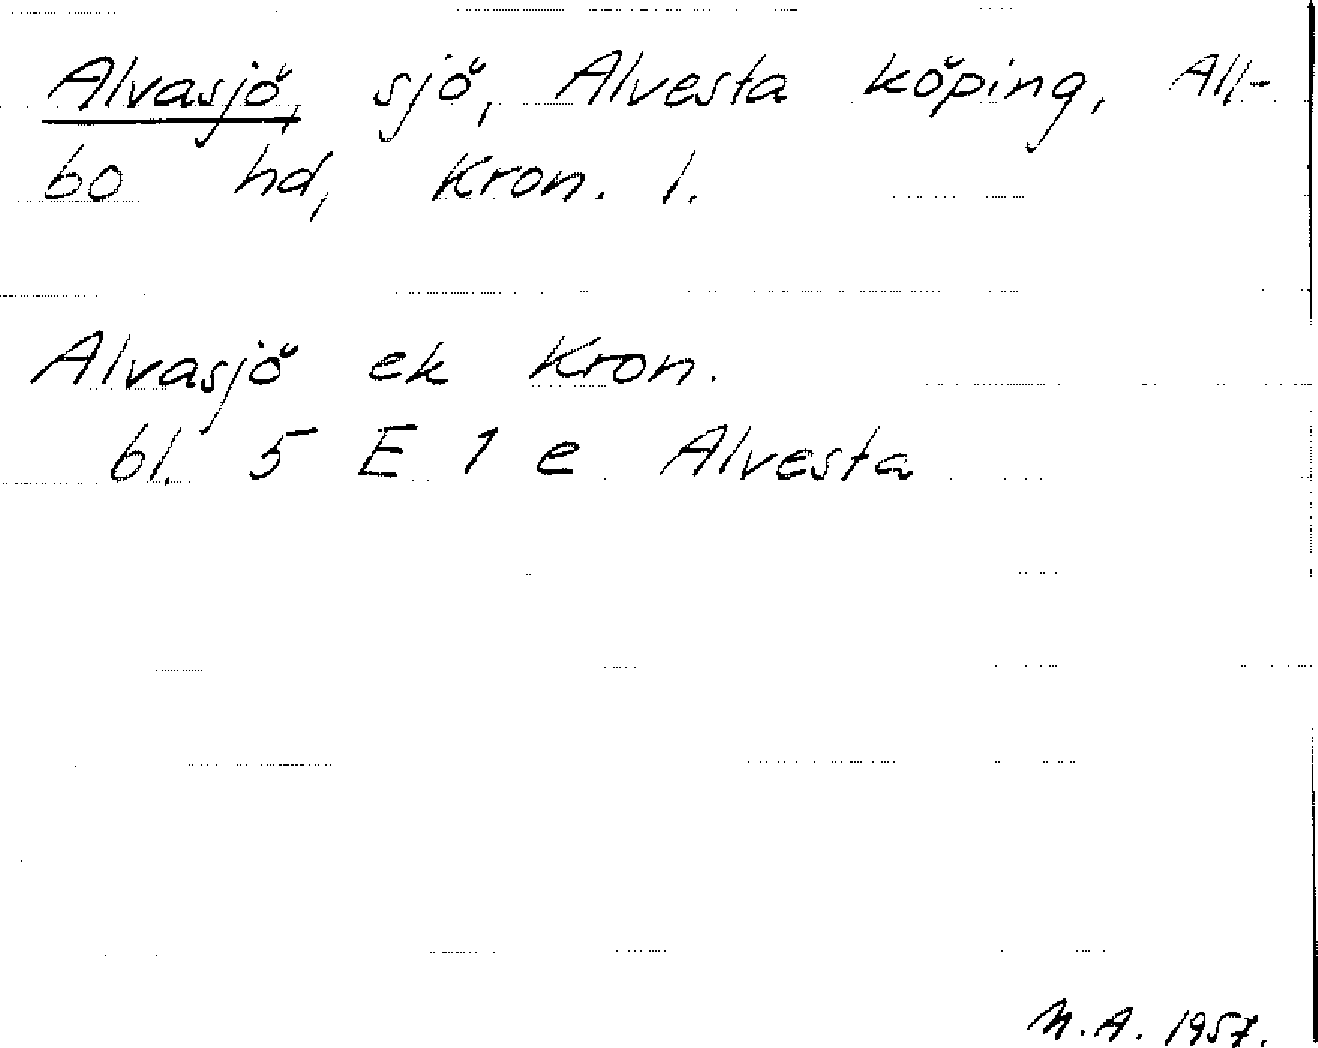 Alvasjö, sjö, Alvesta köping, All-
bo hd, Kron. l.
Alvasjö ek Kron.
bl. 5 E 1 e Alvesta
M.A. 1957.